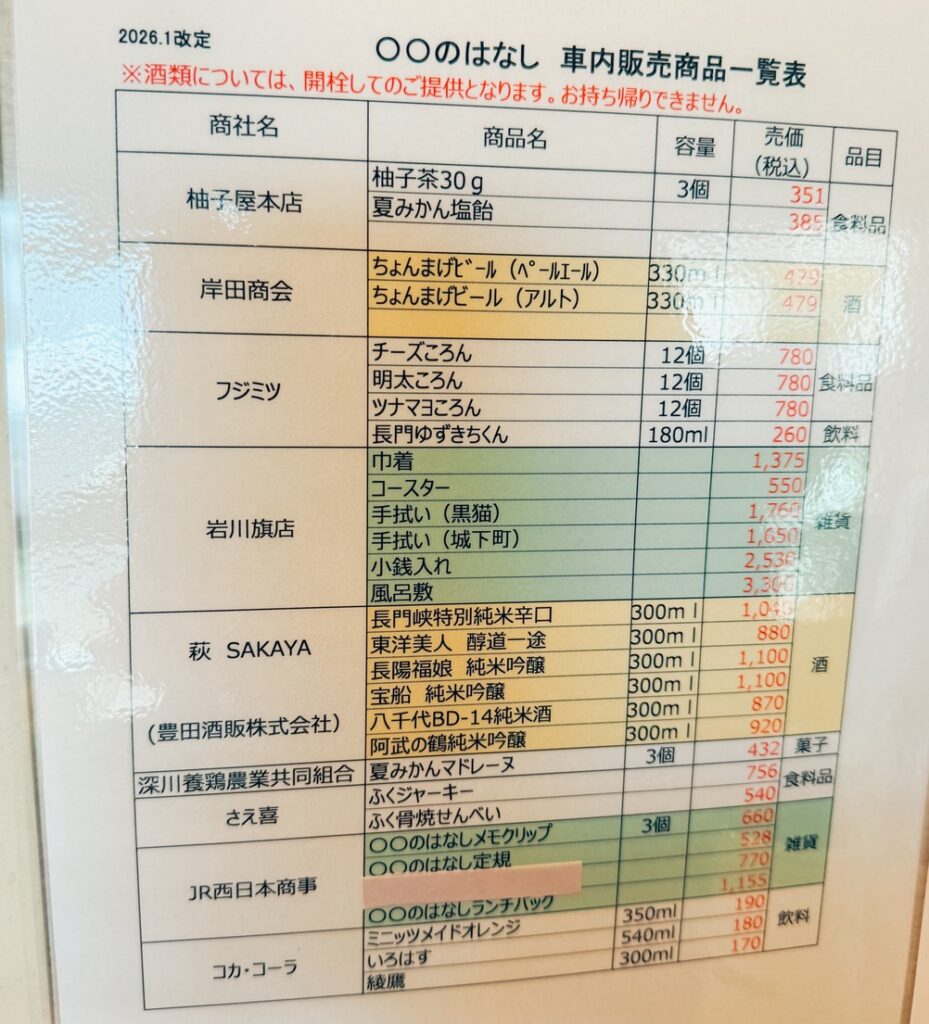 2026.1改定
〇〇のはなし 車内販売商品一覧表
※酒類については、開栓してのご提供となります。お持ち帰りできません。
商社名 商品名 容量 売価(税込) 品目
柚子屋本店 柚子茶30g 3個 351 食料品
夏みかん塩飴 385
岸田商会 ちょんまげビール(ペールエール) 330ml 479 酒
ちょんまげビール(アルト) 330ml 479
フジミツ チーズころん 12個 780 食料品
明太ころん 12個 780
ツナマヨころん 12個 780
長門ゆずきちくん 180ml 260 飲料
岩川旗店 巾着 1,375 雑貨
コースター 550
手拭い(黒猫) 1,760
手拭い(城下町) 1,650
小銭入れ 2,530
風呂敷 3,300
萩 SAKAYA (豊田酒販株式会社) 長門峡特別純米辛口 300ml 酒
東洋美人 醇道一途 300ml 880
長陽福娘 純米吟醸 300ml 1,100
宝船 純米吟醸 300ml 1,100
八千代BD-14純米酒 300ml 870
阿武の鶴純米吟醸 300ml 920
深川養鶏農業共同組合 夏みかんマドレーヌ 3個 432 菓子
さえ喜 ふくジャーキー 756 食料品
ふく骨焼せんべい 540
JR西日本商事 〇〇のはなしメモクリップ 3個 660 雑貨
〇〇のはなし定規 528
770
〇〇のはなしランチバック 1,155
コカ・コーラ ミニッツメイドオレンジ 350ml 190 飲料
いろはす 540ml 180
綾鷹 300ml 170